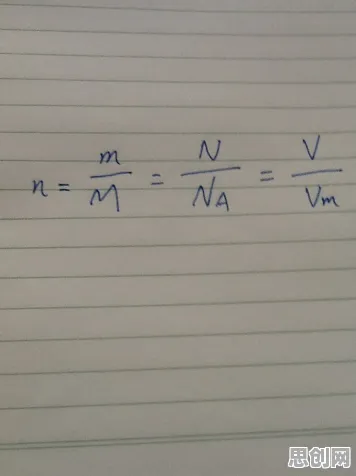 n = m/M = N/N_A = V/Vm
思创网